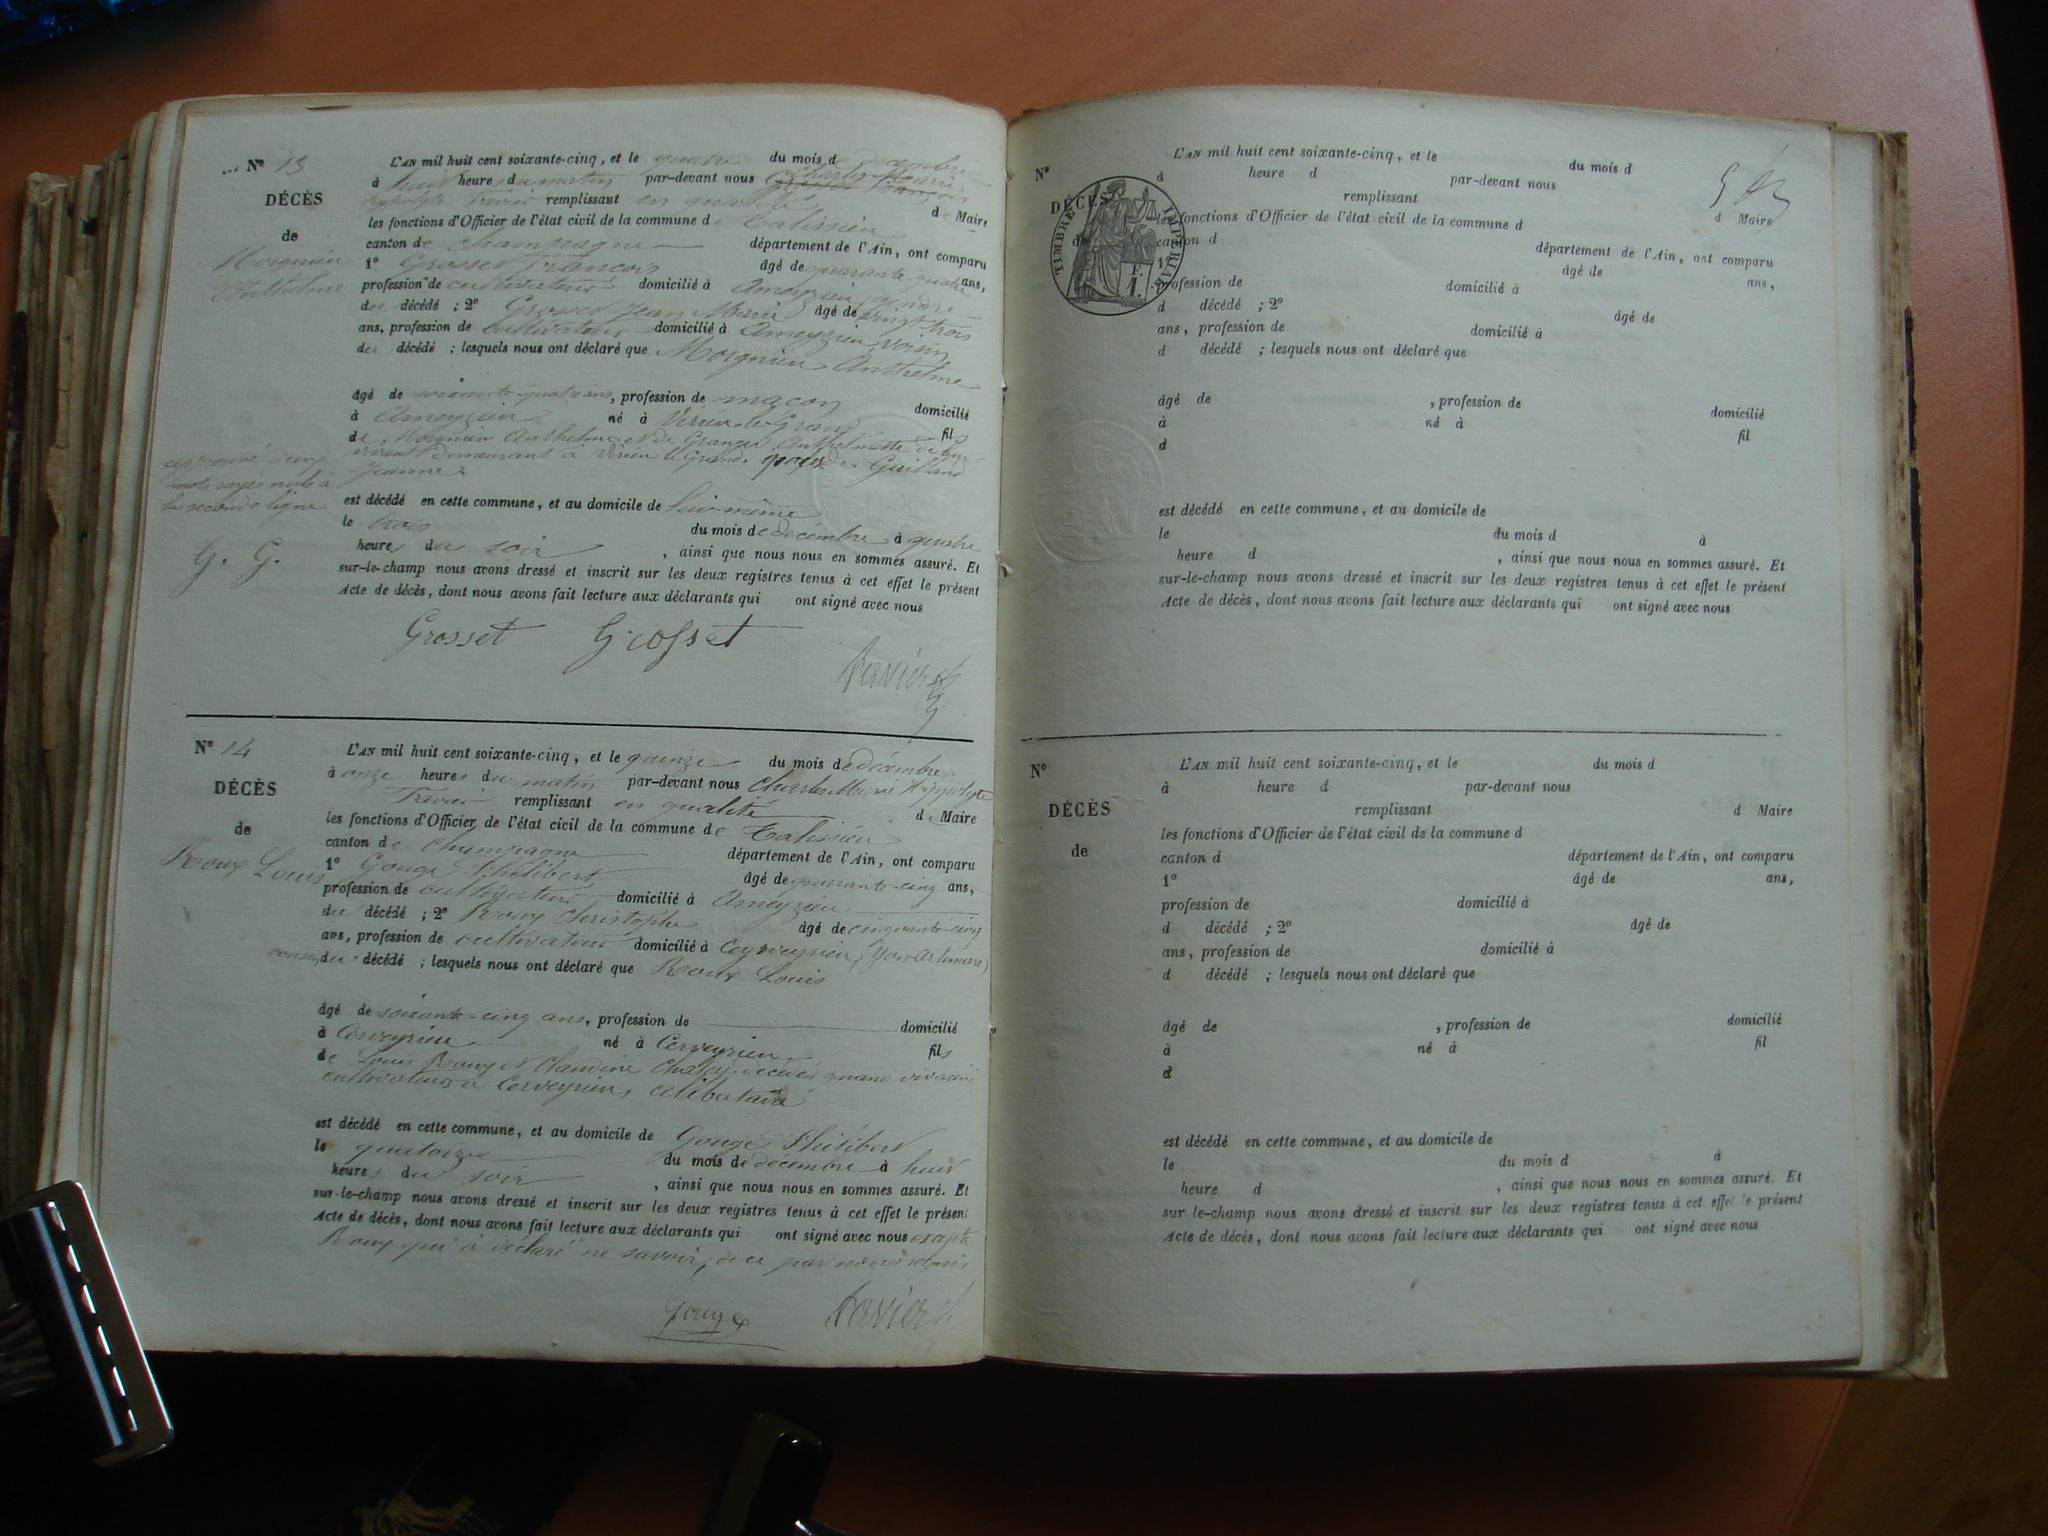 N° 13
DÉCÈS
de
Morgnieu
Anthelme
L'AN mil huit cent soixante-cinq, et le quatre du mois de décembre
à huit heure du matin par-devant nous Grosset François Charles Marie
hypolyte Travier remplissant en qualité d Maire
les fonctions d'Officier de l'état civil de la commune de Talissieu
canton de Champagne département de l'Ain, ont comparu
1° Grosset François âgé de quarante quatre ans,
profession de cultivateur domicilié à Ameyzieu, gendre
du décédé ; 2° Grosset Jean Marie âgé de vingt trois
ans, profession de cultivateur domicilié à Ameyzieu, voisin
du décédé ; lesquels nous ont déclaré que Morgnieu Anthelme
âgé de soixante-quatre ans, profession de maçon domicilié
à Ameyzieu né à Virieu-le-Grand fils
de Morgnieu Anthelme et de Granger Anthelmette de leur
vivant demeurant à Virieu le Grand, époux de Guilland
Jeanne
approuvé cinq
mots rayés nuls à
la seconde ligne
G. G.
est décédé en cette commune, et au domicile de lui-même
le trois du mois de décembre à quatre
heures du soir , ainsi que nous nous en sommes assuré. Et
sur-le-champ nous avons dressé et inscrit sur les deux registres tenus à cet effet le présent
Acte de décès, dont nous avons fait lecture aux déclarants qui ont signé avec nous
Grosset Grosset
Travier
N° 14
DÉCÈS
de
Roux Louis
L'AN mil huit cent soixante-cinq, et le quinze du mois de décembre
à onze heures du matin par-devant nous Charles Marie Hippolyte
Travier remplissant en qualité de Maire
les fonctions d'Officier de l'état civil de la commune de Talissieu
canton de Champagne département de l'Ain, ont comparu
1° Gouge Philibert âgé de quarante-cinq ans,
profession de cultivateur domicilié à Ameyzieu
du décédé ; 2° Roux Christophe âgé de cinquante-cinq
ans, profession de cultivateur domicilié à Cerveyrieu, (Yon-Artemare)
cousin du décédé ; lesquels nous ont déclaré que Roux Louis
âgé de soixante-cinq ans, profession de domicilié
à Cerveyrieu né à Cerveyrieu fils
de Louis Roux et Claudine décédés quand vivaient
cultivateurs à Cerveyrieu, célibataire
est décédé en cette commune, et au domicile de Gouge Philibert
le quatorze du mois de décembre à huit
heures du soir , ainsi que nous nous en sommes assuré. Et
sur-le-champ nous avons dressé et inscrit sur les deux registres tenus à cet effet le présent
Acte de décès, dont nous avons fait lecture aux déclarants qui ont signé avec nous excepté
Roux qui a déclaré ne savoir, de ce par nous requis
Gouge Travier
N°
DÉCÈS
de
TIMBRE IMPÉRIAL
F.
1.
L'AN mil huit cent soixante-cinq, et le du mois d
à heure d par-devant nous
remplissant d Maire
les fonctions d'Officier de l'état civil de la commune d
canton d département de l'Ain, ont comparu
1° âgé de ans,
profession de domicilié à
d décédé ; 2° âgé de
ans, profession de domicilié à
d décédé ; lesquels nous ont déclaré que
âgé de , profession de domicilié
à né à fil
d
est décédé en cette commune, et au domicile de
le du mois d à
heure d , ainsi que nous nous en sommes assuré. Et
sur-le-champ nous avons dressé et inscrit sur les deux registres tenus à cet effet le présent
Acte de décès, dont nous avons fait lecture aux déclarants qui ont signé avec nous
N°
DÉCÈS
de
L'AN mil huit cent soixante-cinq, et le du mois d
à heure d par-devant nous
remplissant d Maire
les fonctions d'Officier de l'état civil de la commune d
canton d département de l'Ain, ont comparu
1° âgé de ans,
profession de domicilié à
d décédé ; 2° âgé de
ans, profession de domicilié à
d décédé ; lesquels nous ont déclaré que
âgé de , profession de domicilié
à né à fil
d
est décédé en cette commune, et au domicile de
le du mois d à
heure d , ainsi que nous nous en sommes assuré. Et
sur le-champ nous avons dressé et inscrit sur les deux registres tenus à cet effet le présent
Acte de décès, dont nous avons fait lecture aux déclarants qui ont signé avec nous